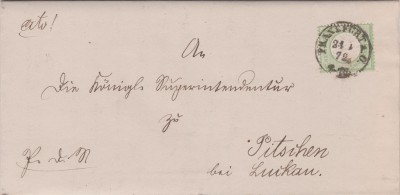 cito!
FRANKFURT a. O.
24 1
72
An
Die Königl. Superintendentur
zu
Pitschen
bei Luckau.
P. d. N